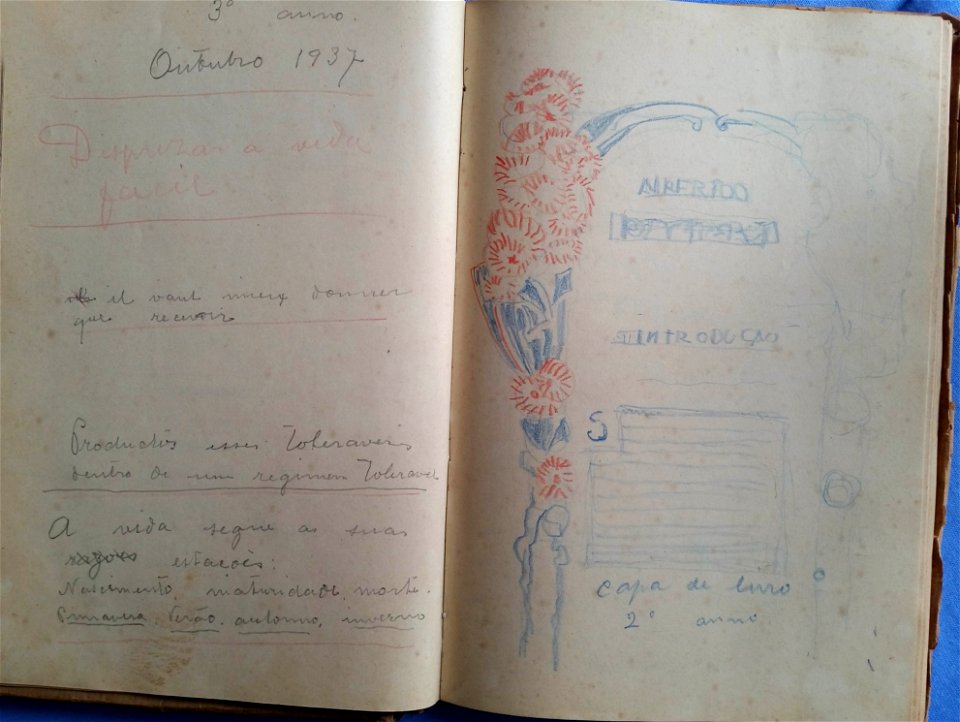 3º anno.
Outubro 1937
Desprezar a vida
facil.
il vaut mieux donner
que recevoir
Productos esses toleraveis
dentro de um regimen toleravel
A vida segue as suas
estações:
Nascimento, maturidade, morte.
Primavera, Verão, outonno, inverno
INTRODUÇÃO
S
capa de livro
2º anno